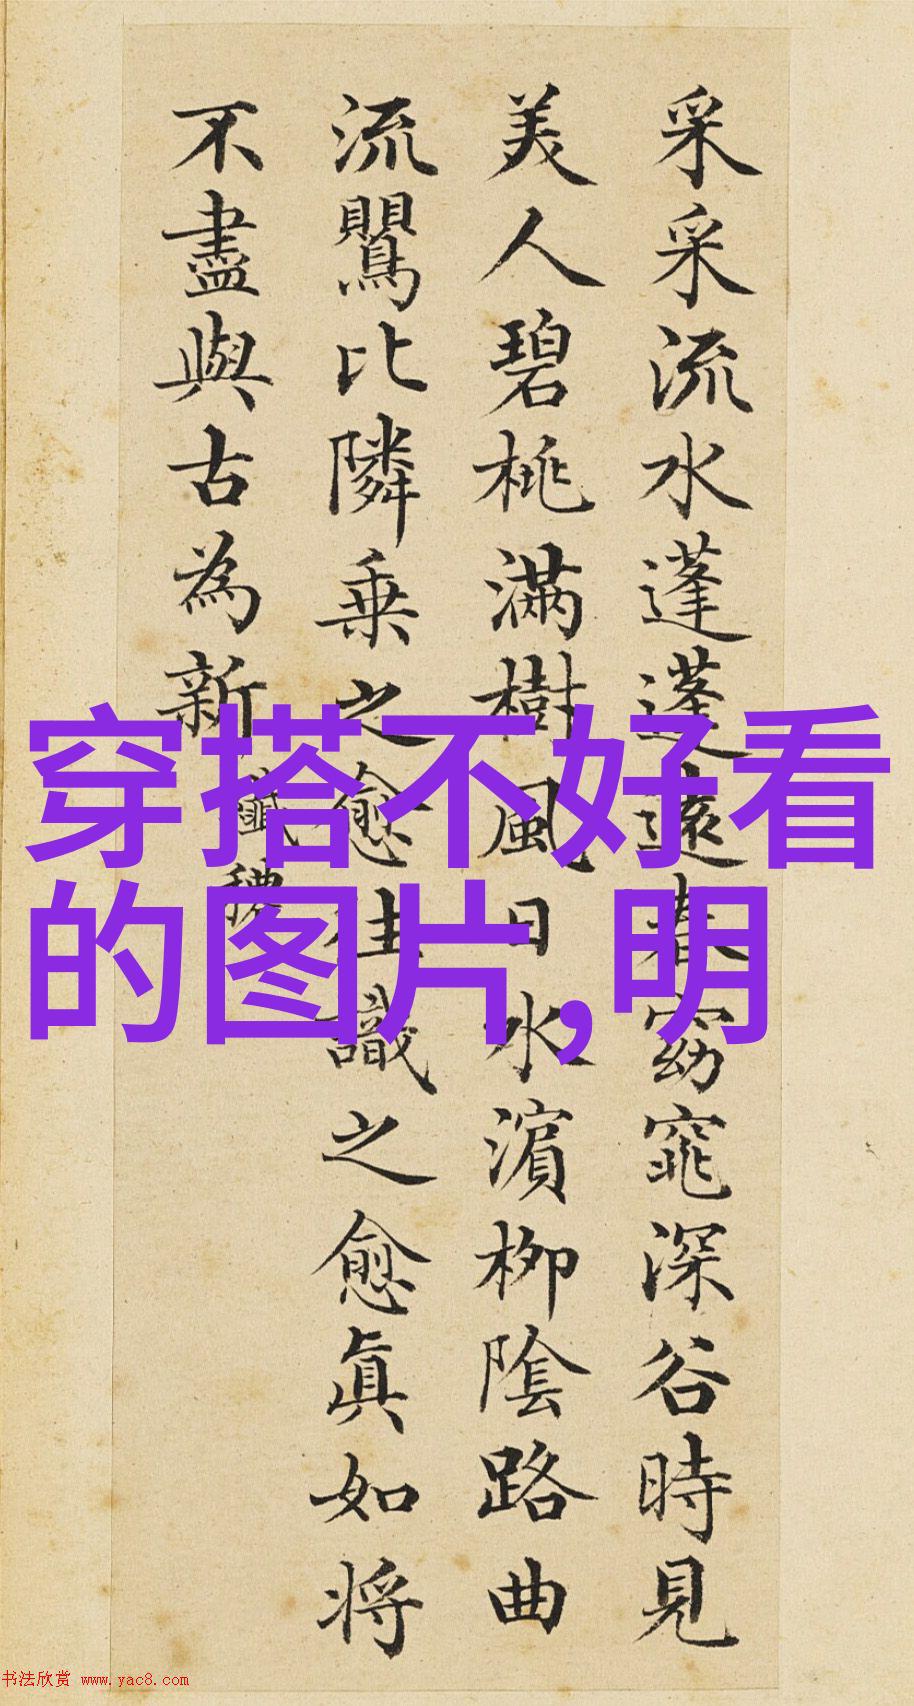 采采流水蓬蓬遠春窈窕深谷時見
美人碧桃滿樹風日水濵柳陰路曲
流鸎比隣乗之愈往識之愈眞如将
不盡與古為新
纖穠
穿搭不好看
的图片,明
书法欣赏 www.yac8.com